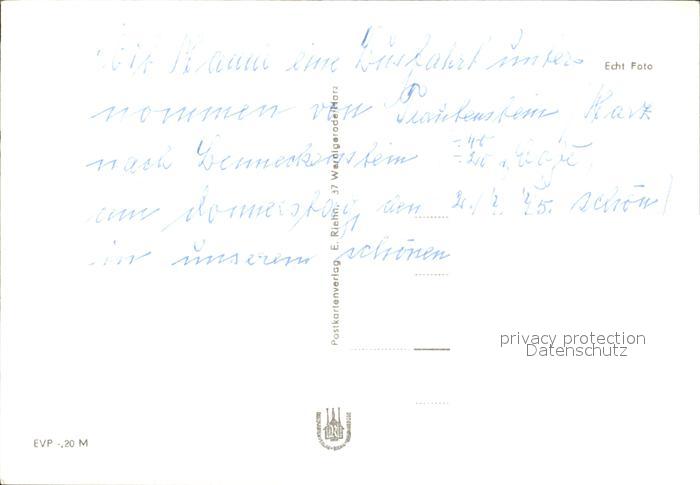 Mit Hanni eine Ausfahrt unter-
nommen von Trautenstein, Harz
nach Benneckenstein
am Donnerstag, den schön
in unserem schönen
Echt Foto
Postkartenverlag E. Riehn, 37 Wernigerode/Harz
privacy protection
Datenschutz
EVP -,20 M